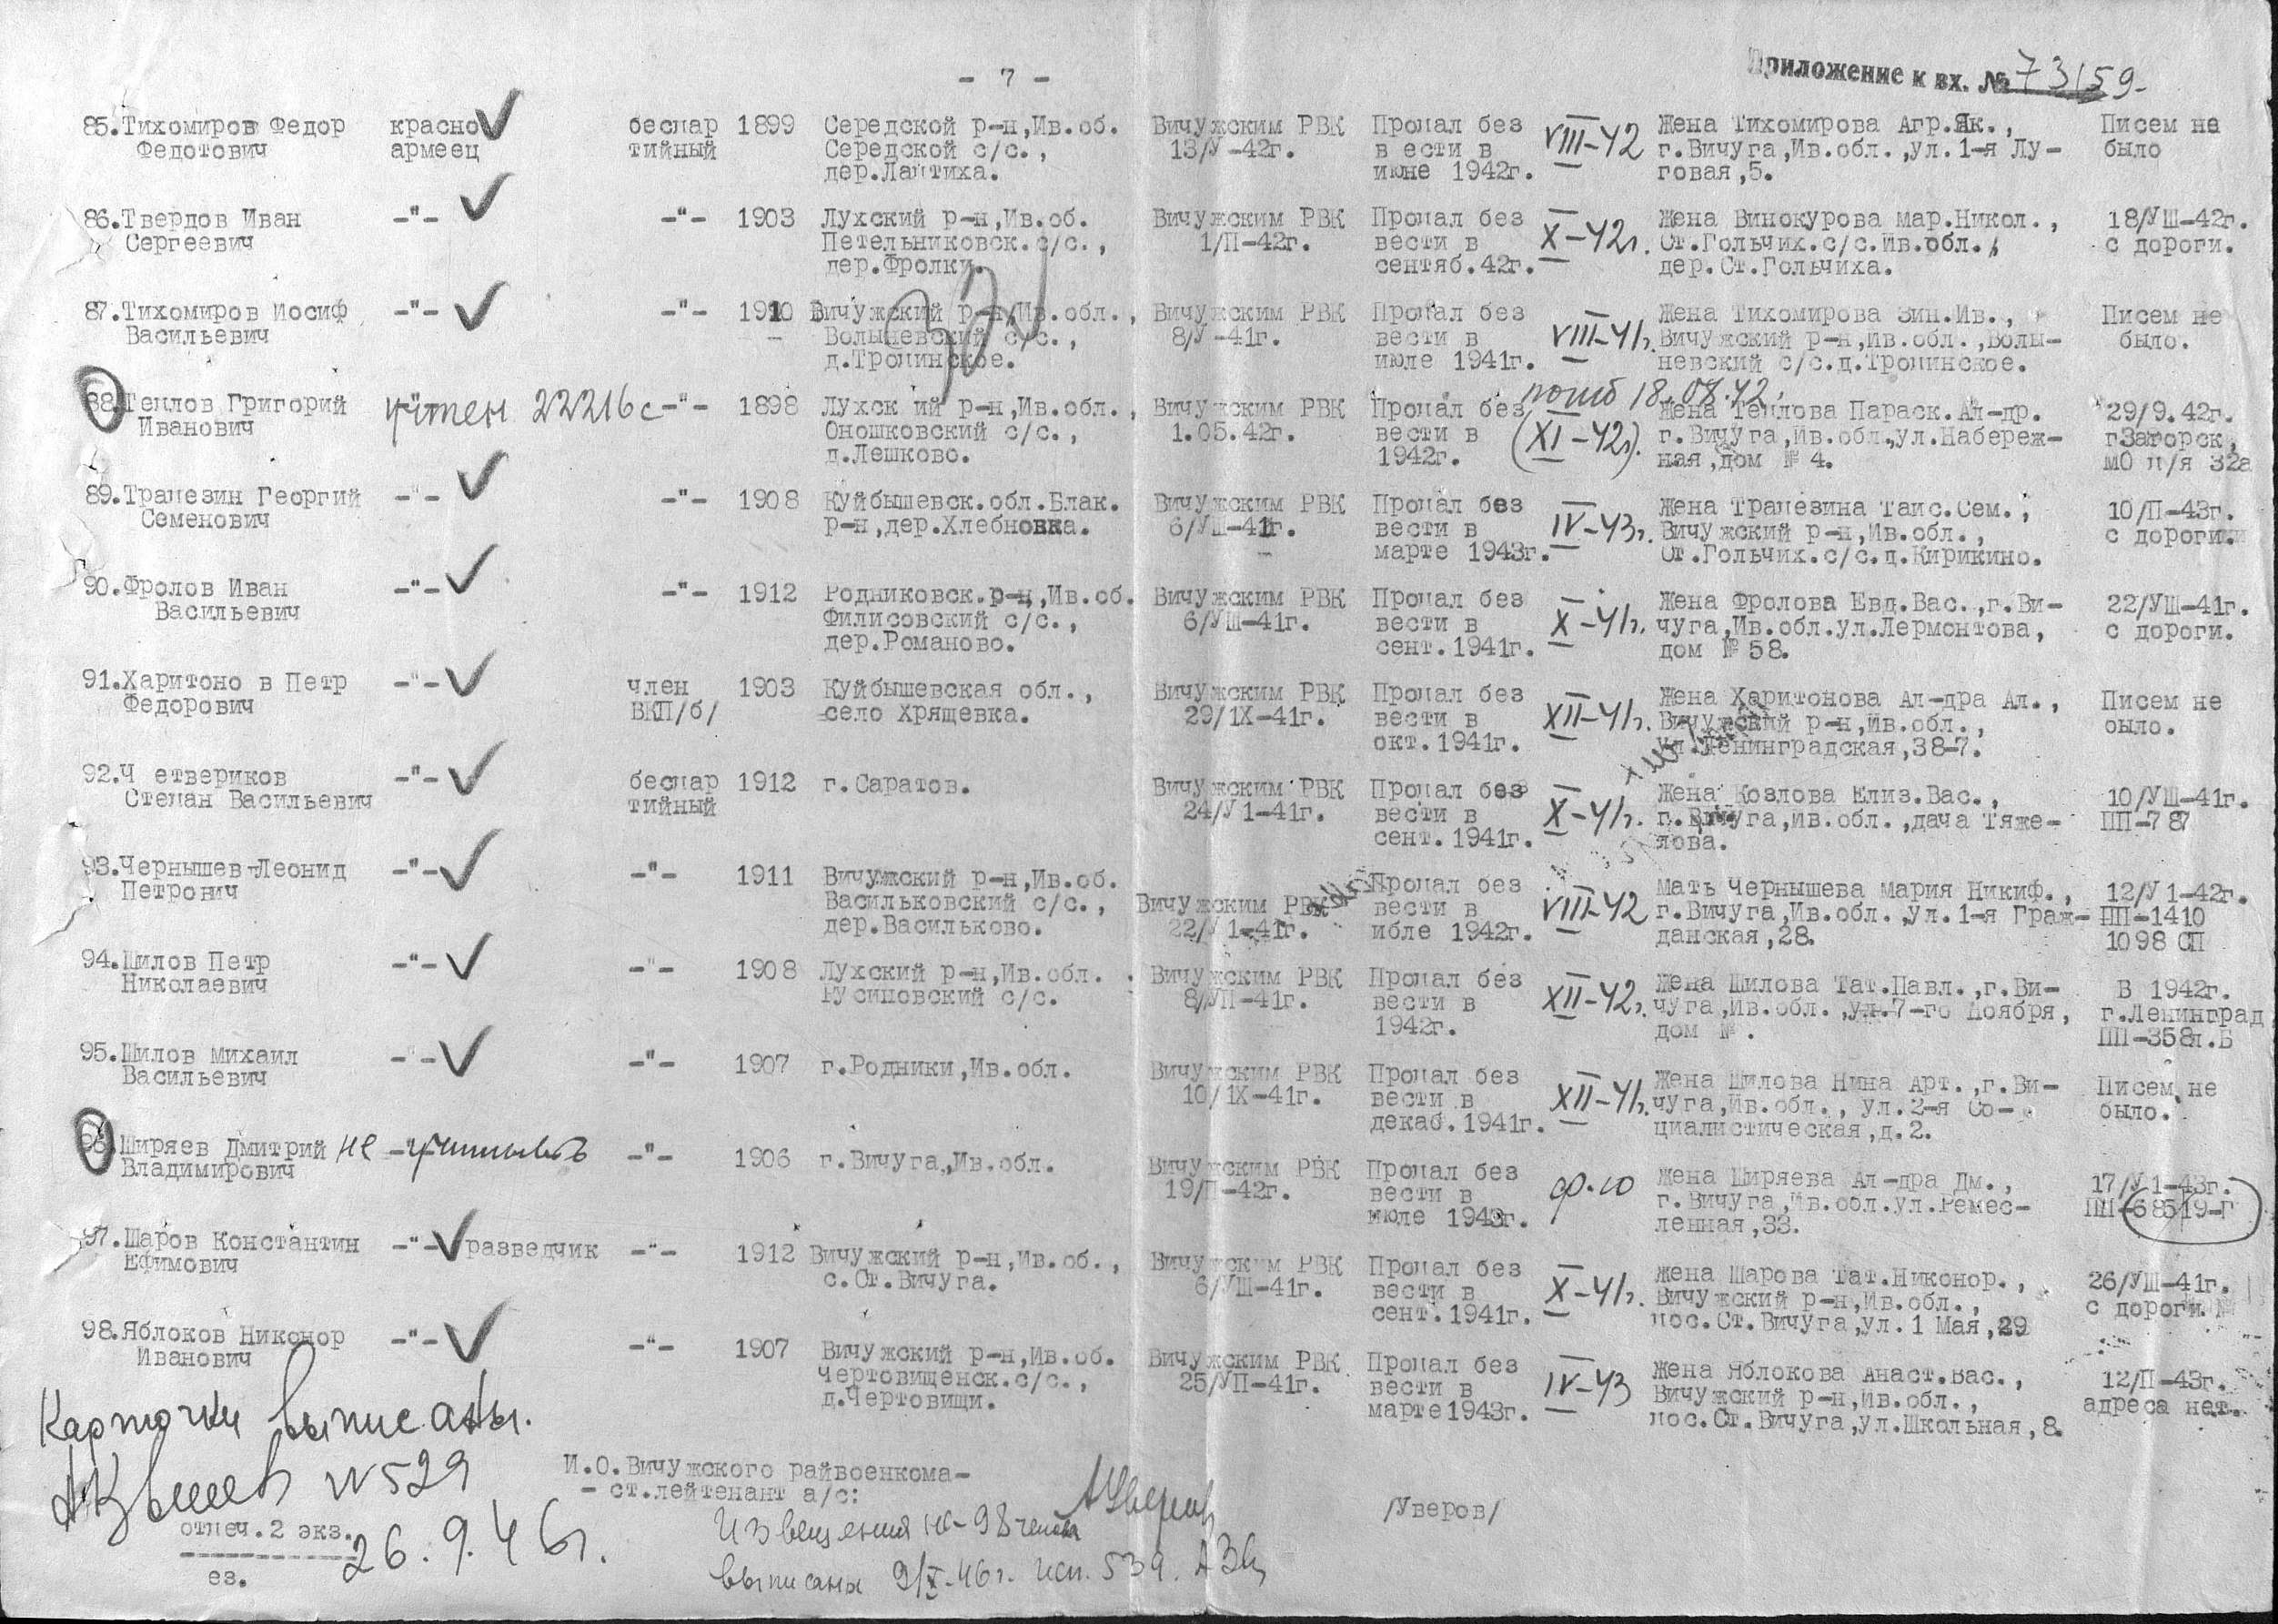 - 7 -
Приложение к вх. № 73159-
85.Тихомиров Федор красно беспар 1899 Середской р-н,Ив.об. Вичужским РВК Пропал без VIII-42 Жена Тихомирова Агр.Як., Писем не
Федотович армеец тийный Середской с/с., 13/У-42г. в ести в г.Вичуга,Ив.обл.,ул.1-я Лу- было
дер.Лаптиха. июне 1942г. говая,5.
86.Твердов Иван -"- -"- 1903 Лухский р-н,Ив.об. Вичужским РВК Пропал без X-42г. Жена Винокурова Мар.Никол., 18/УШ-42г.
Сергеевич Петельниковск.с/с., 1/П-42г. вести в Ст.Гольчих.с/с.Ив.обл., с дороги.
дер.Фролки. сентяб.42г. дер.Ст.Гольчиха.
87.Тихомиров Иосиф -"- -"- 1910 Вичужский р-н,Ив.обл., Вичужским РВК Пропал без VIII-41г. Жена Тихомирова Зин.Ив., Писем не
Васильевич Волыневский с/с., 8/У-41г. вести в Вичужский р-н,Ив.обл.,Волы- было.
д.Тропинское. июле 1941г. невский с/с.д.Тропинское.
погиб 18.08.42.
88.Теплов Григорий учтен 22216с -"- 1898 Лухск ий р-н,Ив.обл., Вичужским РВК Пропал без (XI-42г). Жена Теплова Параск.Ал-др. 29/9.42г.
Иванович Оношковский с/с., 1.05.42г. вести в г.Вичуга,Ив.обл.,ул.Набереж- гЗагорск,
д.Лешково. 1942г. ная,дом № 4. МО п/я 32а
89.Трапезин Георгий -"- -"- 1908 Куйбышевск.обл.Блак. Вичужским РВК Пропал без IV-43г. Жена Трапезина Таис.Сем., 10/П-43г.
Семенович р-н,дер.Хлебновка. 6/УШ-41г. вести в Вичужский р-н,Ив.обл., с дороги
марте 1943г. Ст.Гольчих.с/с.д.Кирикино.
90.Фролов Иван -"- -"- 1912 Родниковск.р-н,Ив.об. Вичужским РВК Пропал без X-41г. Жена Фролова Евд.Вас.,г.Ви- 22/УШ-41г.
Васильевич Филисовский с/с., 6/УШ-41г. вести в чуга,Ив.обл.ул.Лермонтова, с дороги.
дер.Романово. сент.1941г. дом № 58.
91.Харитоно в Петр -"- член 1903 Куйбышевская обл., Вичужским РВК Пропал без XII-41г. Жена Харитонова Ал-дра Ал., Писем не
Федорович ВКП/б/ село Хрящевка. 29/1X-41г. вести в Вичужский р-н,Ив.обл., было.
окт.1941г. ул.Ленинградская,38-7.
92.Ч етвериков -"- беспар 1912 г.Саратов. Вичужским РВК Пропал без X-41г. Жена Козлова Елиз.Вас., 10/УШ-41г.
Степан Васильевич тийный 24/У1-41г. вести в г.Вичуга,Ив.обл.,дача Тяже- ПП-787
сент.1941г. лова.
93.Чернышев Леонид -"- -"- 1911 Вичужский р-н,Ив.об. Пропал без VIII-42 Мать Чернышева Мария Никиф., 12/У1-42г.
Петрович Васильковский с/с., Вичужским РВК вести в г.Вичуга,Ив.обл.,ул.1-я Граж- ПП-1410
дер.Васильково. 22/У1-41г. ибле 1942г. данская,28. 1098 СП
94.Шилов Петр -"- -"- 1908 Лухский р-н,Ив.обл. Вичужским РВК Пропал без XII-42г. Жена Шилова Тат.Павл.,г.Ви- В 1942г.
Николаевич Русиновский с/с. 8/УП-41г. вести в чуга,Ив.обл.,ул.7-го Ноября, г.Ленинград
1942г. дом № . ПП-358п.Б
95.Шилов Михаил -"- -"- 1907 г.Родники,Ив.обл. Вичужским РВК Пропал без XII-41г. Жена Шилова Нина Арт.,г.Ви- Писем не
Васильевич 10/1X-41г. вести в чуга,Ив.обл., ул.2-я Со- было.
декаб.1941г. циалистическая,д.2.
96.Ширяев Дмитрий не -"- учитывать -"- 1906 г.Вичуга,Ив.обл. Вичужским РВК Пропал без ф.10 Жена Ширяева Ал-дра Дм., 17/У1-43г.
Владимирович 19/П-42г. вести в г.Вичуга,Ив.обл.ул.Ремес- ПП-68519-Г
июле 1943г. ленная,33.
97.Шаров Константин -"- разведчик -"- 1912 Вичужский р-н,Ив.об., Вичужским РВК Пропал без X-41г. Жена Шарова Тат.Никонор., 26/УШ-41г.
Ефимович с.Ст.Вичуга. 6/УШ-41г. вести в Вичужский р-н,Ив.обл., с дороги
сент.1941г. пос.Ст.Вичуга,ул.1 Мая,29
98.Яблоков Никонор -"- -"- 1907 Вичужский р-н,Ив.об. Вичужским РВК Пропал без IV-43 Жена Яблокова Анаст.Вас., 12/П-43г.
Иванович Чертовищенск.с/с., 25/УП-41г. вести в Вичужский р-н,Ив.обл., адреса нет.
д.Чертовищи. марте1943г. пос.Ст.Вичуга,ул.Школьная,8.
Карточки выписаны.
№529
26.9.46г.
И.О.Вичужского райвоенкома-
- ст.лейтенант а/с: /Уверов/
отпеч.2 экз.
ез.
Извещения на 98 человек
выписаны 9/X-46г. исп. 539.